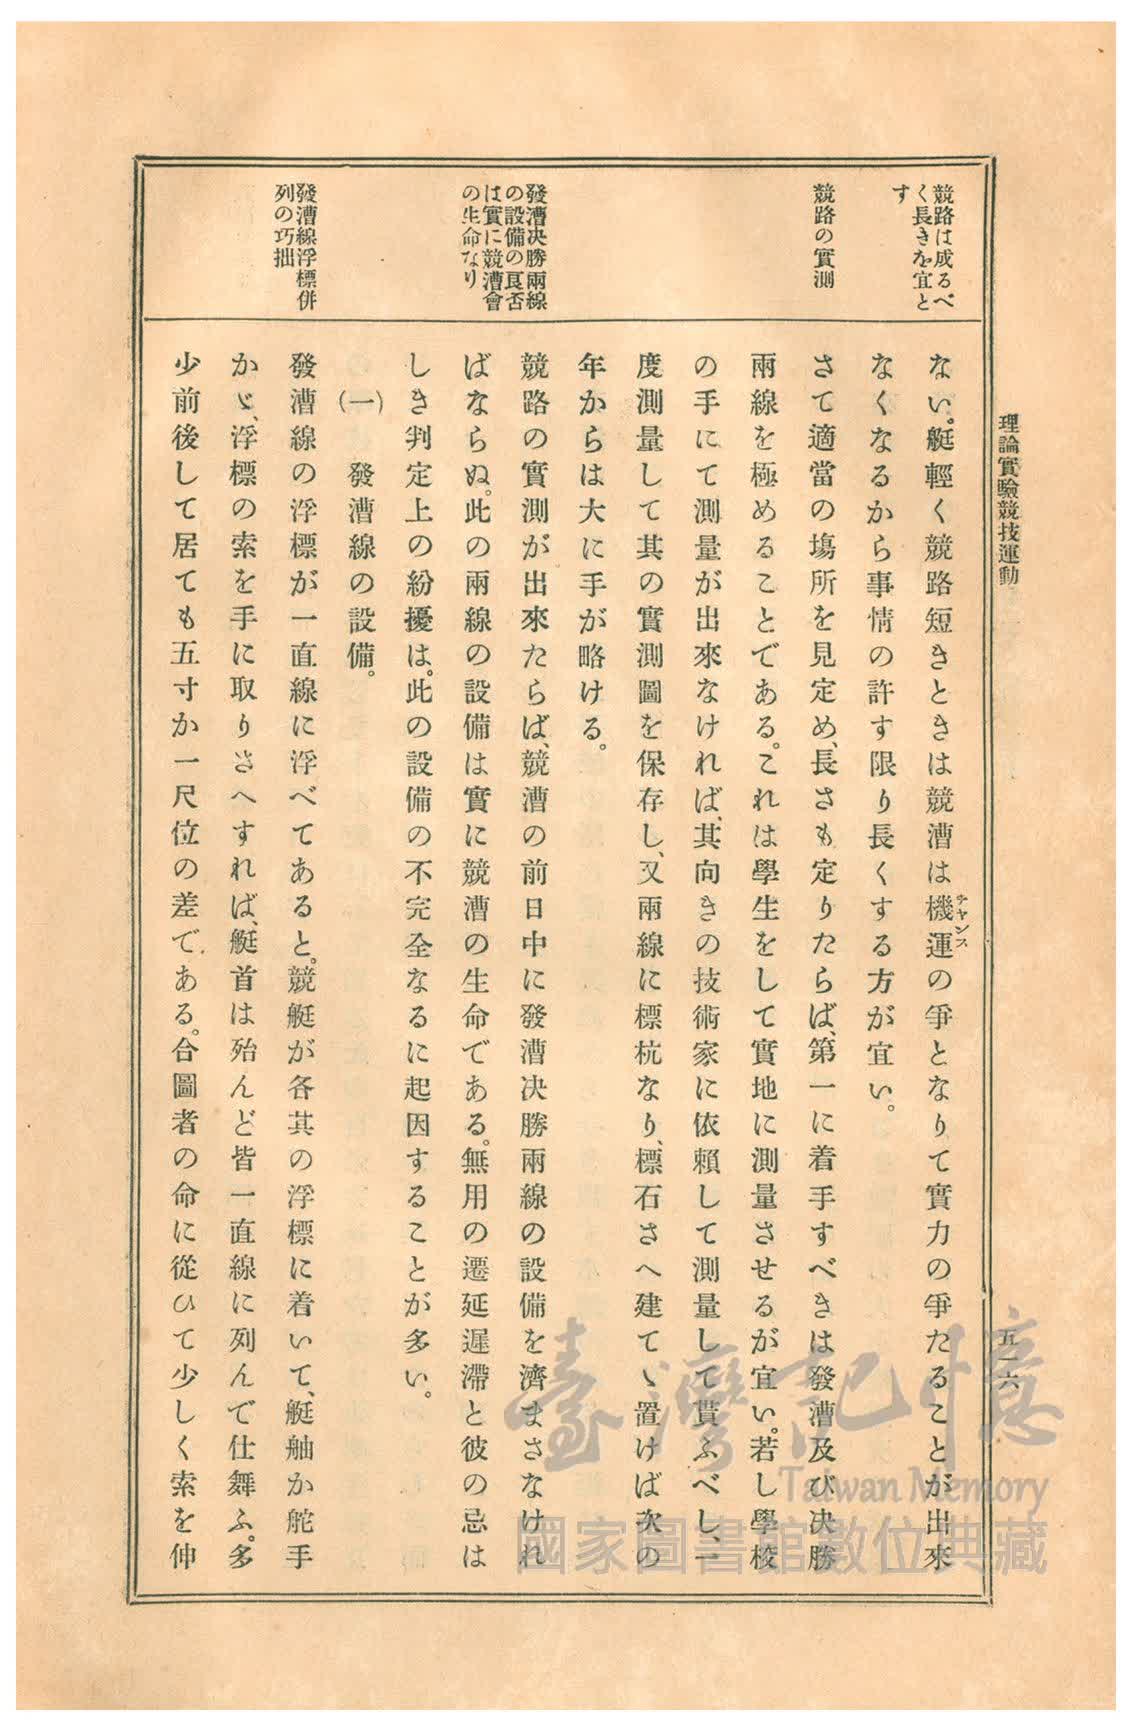 理論實驗競技運動
五一六
競路は成るべ
く長きを宜と
す
競路の實測
發漕决勝兩線
の設備の良否
は實に競漕會
の生命なり
發漕線浮標併
列の巧拙
ない。艇輕く競路短きときは競漕は機運の爭となりて實力の爭たることが出來
チヤンス
なくなるから事情の許す限り長くする方が宜い。
さて適當の塲所を見定め、長さも定りたらば、第一に着手すべきは發漕及び决勝
兩線を極めることである。これは學生をして實地に測量させるが宜い。若し學校
の手にて測量が出來なければ、其向きの技術家に依賴して測量して貰ふべし、一
度測量して其の實測圖を保存し、又兩線に標杭なり、標石さへ建てゝ置けば次の
年からは大に手が略ける。
競路の實測が出來たらば、競漕の前日中に發漕决勝兩線の設備を濟まさなけれ
ばならぬ。此の兩線の設備は實に競漕の生命である。無用の遷延遲滯と彼の忌は
しき判定上の紛擾は。此の設備の不完全なるに起因することが多い。
(一) 發漕線の設備。
發漕線の浮標が一直線に浮べてあると。競艇が各其の浮標に着いて、艇舳か舵手
かゞ、浮標の索を手に取りさへすれば、艇首は殆んど皆一直線に列んで仕舞ふ。多
少前後して居ても五寸か一尺位の差である。合圖者の命に從ひて少しく索を伸
臺灣記憶
Taiwan Memory
國家圖書館數位典藏